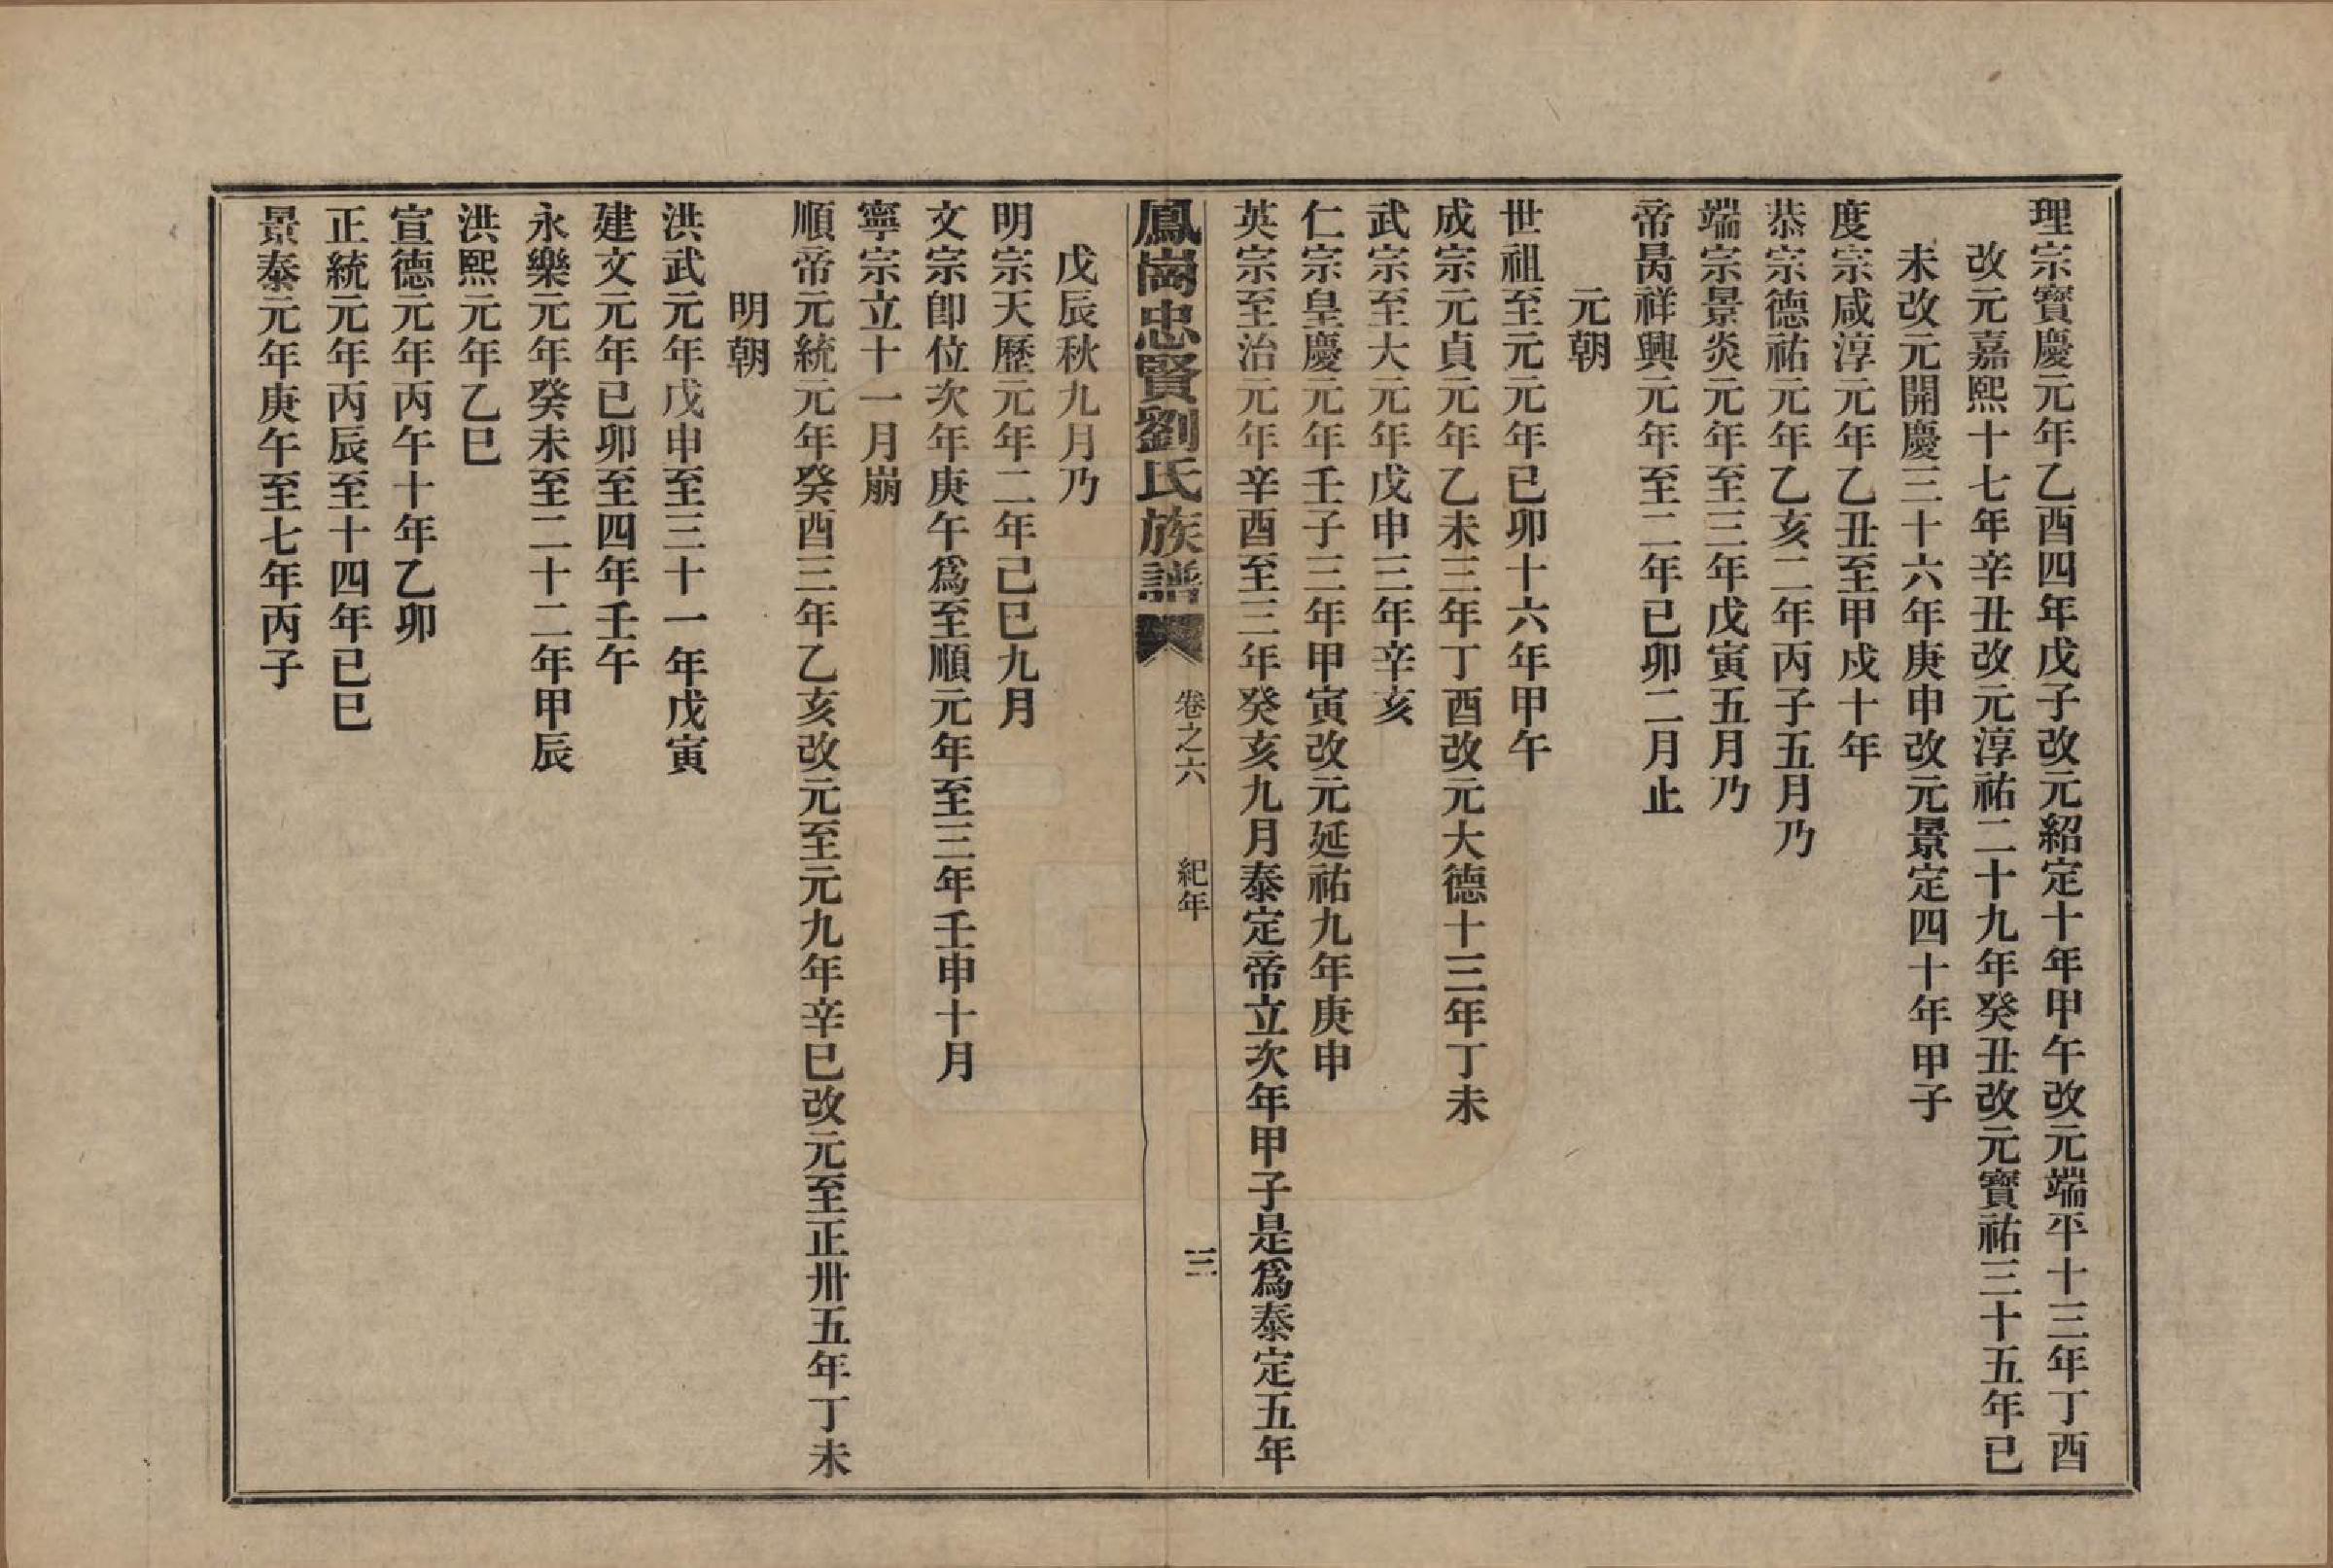 理宗寶慶元年乙酉四年戊子改元紹定十年甲午改元端平十三年丁酉
改元嘉熙十七年辛丑改元淳祐二十九年癸丑改元寶祐三十五年已
未改元開慶三十六年庚申改元景定四十年甲子
度宗咸淳元年乙丑至甲戍十年
恭宗德祐元年乙亥二年丙子五月乃
端宗景炎元年至三年戊寅五月乃
帝昺祥興元年至二年已卯二月止
元朝
世祖至元元年已卯十六年甲午
成宗元貞元年乙未三年丁酉改元大德十三年丁未
武宗至大元年戊申三年辛亥
仁宗皇慶元年壬子三年甲寅改元延祐九年庚申
英宗至治元年辛酉至三年癸亥九月泰定帝立次年甲子是爲泰定五年
鳳崗忠賢劉氏族譜 卷之六 紀年 三
戊辰秋九月乃
明宗天歷元年二年己巳九月
文宗卽位次年庚午爲至順元年至三年壬申十月
寧宗立十一月崩
順帝元統元年癸酉三年乙亥改元至元九年辛巳改元至正卅五年丁未
明朝
洪武元年戊申至三十一年戊寅
建文元年已卯至四年壬午
永樂元年癸未至二十二年甲辰
洪熙元年乙巳
宣德元年丙午十年乙卯
正統元年丙辰至十四年已巳
景泰元年庚午至七年丙子